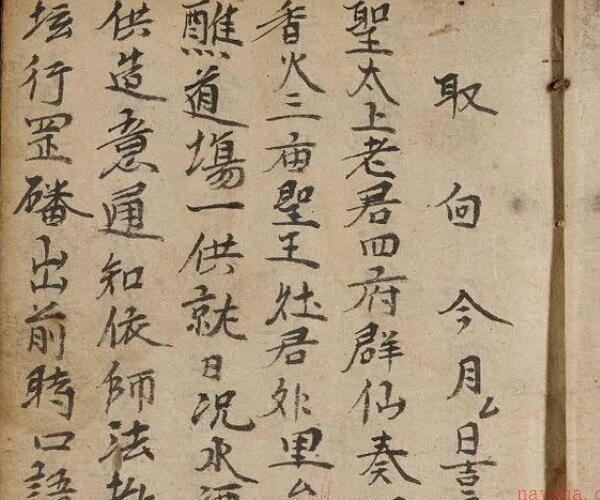 取向今月厶日吉
聖太上老君四府群仙奏
香火三庙聖王社君外里
醮道塲一供就日况水酒
供造意通知依師法
坛行罡磻出前時口語